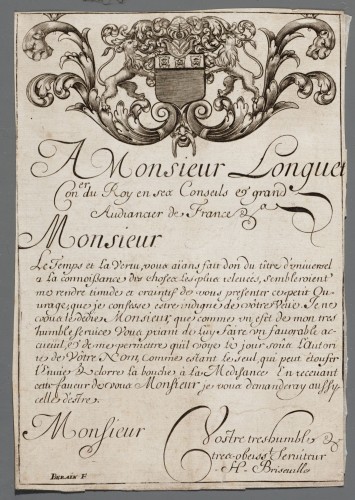 A Monsieur Longuet
Con.er du Roy en ses Conseils et grand
Audiancier de France
Monsieur
Le Temps et la Vertu, vous aians fait don du titre d'Universel
a la connoissance des choses les plus elevées, sembleroient
me rendre timide et craintif de vous presenter ce petit Ou-
vrage, que je confesse estre indigne de vôtre Veuë. Je ne
vous le dedie Monsieur que comme un efét de mon tres
humble service Vous priant de luy faire un favorable ac-
cueuil, et de me permetre qu'il voye le jour sous l'Autori
té de Vôtre Nom, comme estant le seul, qui peut étoufer
l'Envie, et clorre la bouche a la Medisance. En recevant
cette faveur de vous Monsieur je vous demanderay aussy
celle d'estre.
Monsieur
Vostre tres humble
et tres obeiss.t Serviteur
H. Brisville
Berain F.